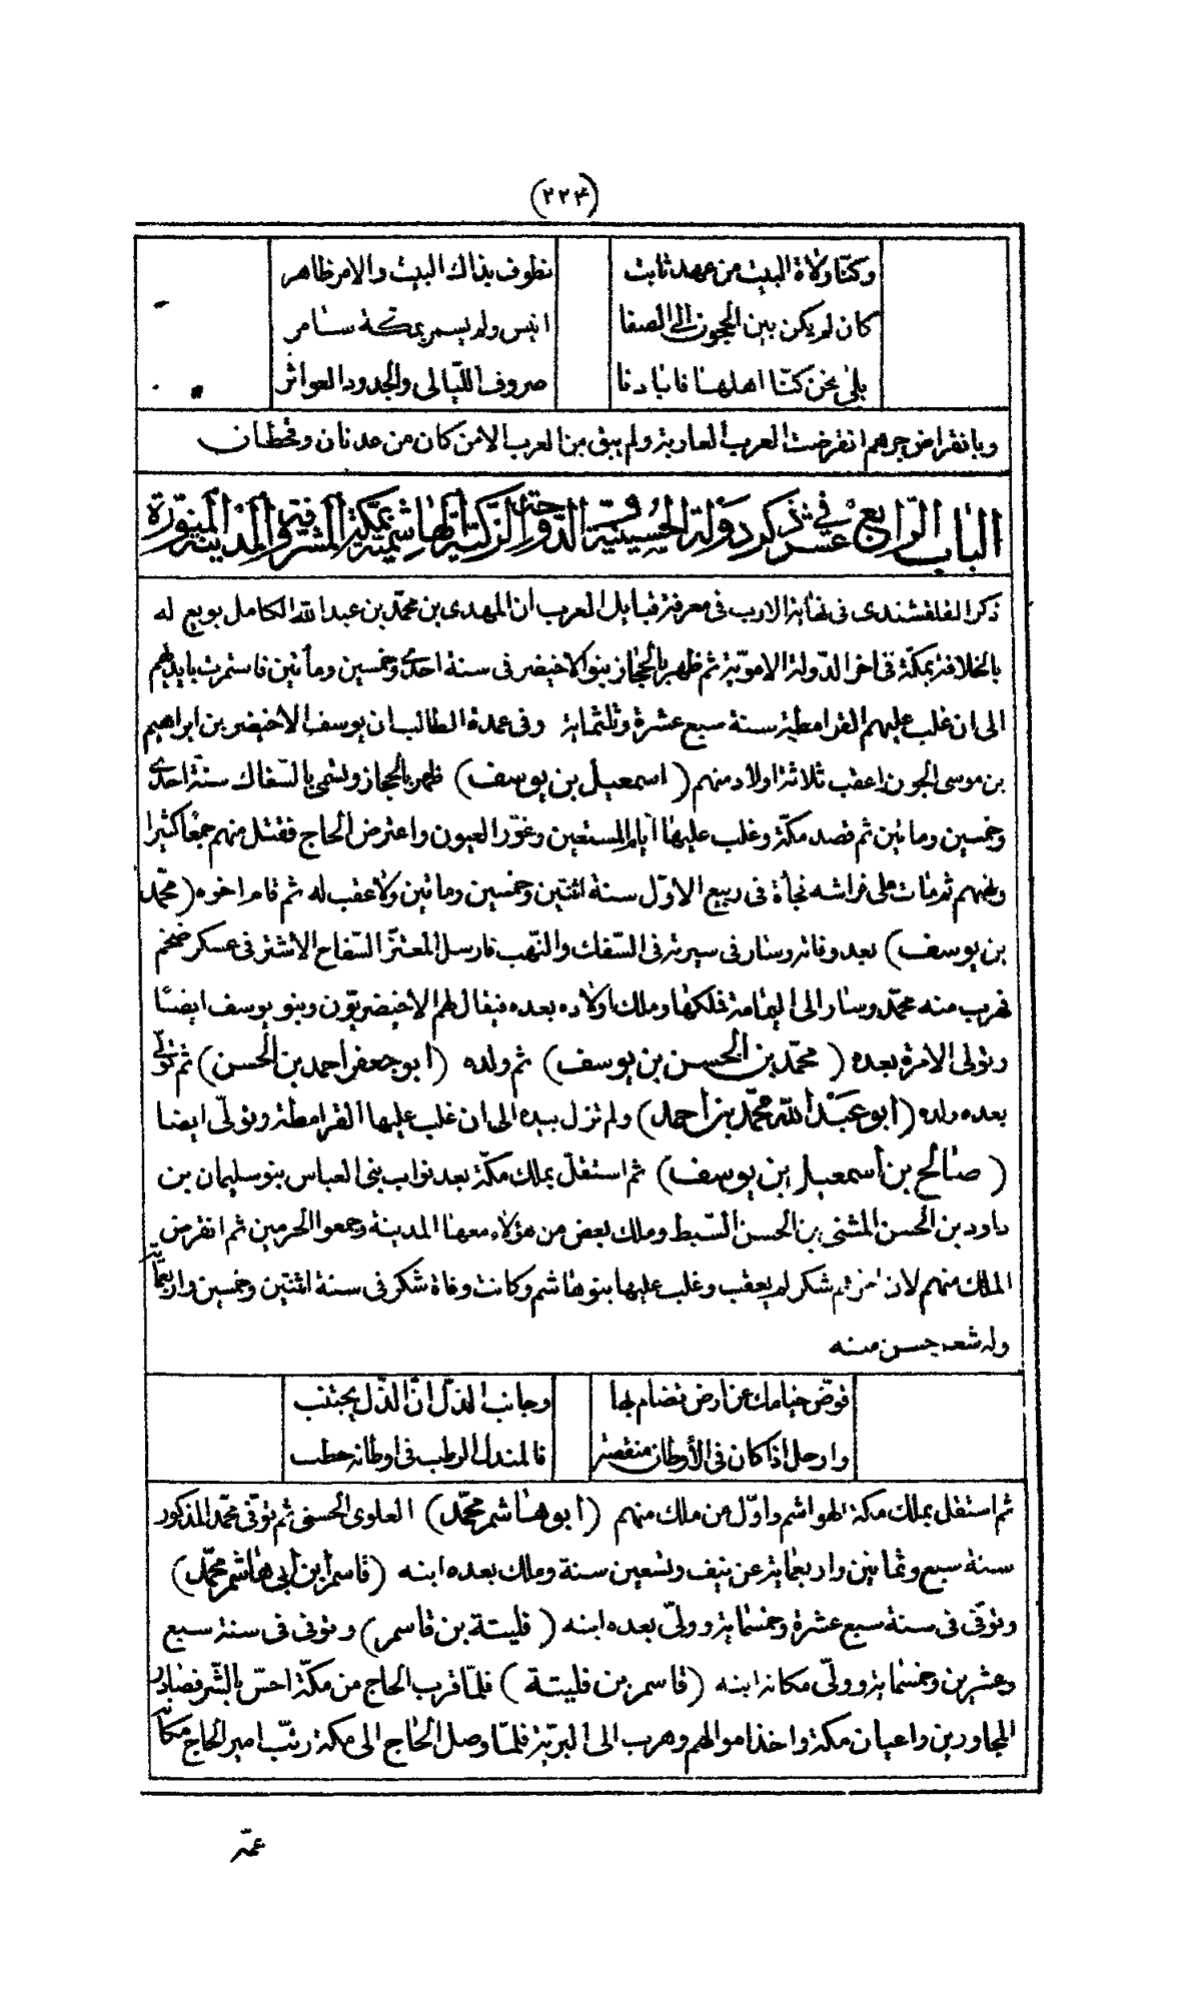 (٢٢٤)
وكنّا ولاة البيت من عهد ثابت نطوف بذاك البيت والامر ظاهر
كان لم يكن بين الحجون الى الصفا انيس ولم يسمر بمكة سامر
بلى نحن كنّا اهلها فابادنا صروف اللّيالى والجدود العواثر
وبانقراض جرهم انقرضت العرب العاربة ولم يبق من العرب الا من كان من عدنان وقحطان
الباب الرّابع عشر فى ذكر دولة الحسينيّة الدّوحة الزكيّة الهاشميّة بمكّة المشرفة والمدينة المنوّرة
ذكر القلقشندى فى نهاية الارب فى معرفة قبايل العرب ان المهدى بن محمّد بن عبد الله الكامل بويع له
بالخلافة بمكّة فى اخر الدّولة الامويّة ثم ظهر بالحجاز بنو الاخيضر فى سنة احدى وخمسين ومأتين فاستمرت بايديهم
الى ان غلب عليهم القرامطة سنة سبع عشرة وثلثماية وفى عمدة الطالب ان يوسف الاخيضر بن ابراهيم
بن موسى الجون اعقب ثلاثة اولاد منهم (اسمعيل بن يوسف) ظهر بالحجاز وتسمى بالسّفاك سنة احدى
وخمسين وماتين ثم قصد مكّة وغلب عليها ايام المستعين وغوّر العيون واعترض الحاج فقتل منهم جمعًا كثيرا
ونهبهم ثم مات على فراشه فجأة فى ربيع الاوّل سنة اثنتين وخمسين وماتين ولا عقب له ثم قام اخوه (محمّد
بن يوسف) بعد وفاته وسار فى سيرته فى السّفك والنّهب فارسل المعتزّ السّفاح الاشتر فى عسكر ضخم
فهرب منه محمّد وسار الى اليمامة فملكها وملك اولاده بعده فيقال لهم الاخيضريّون وبنو يوسف ايضًا
وتولى الامرة بعده (محمّد بن الحسن بن يوسف) ثم ولده (ابو جعفر احمد بن الحسن) ثم تولّى
بعده ولده (ابو عبد الله محمّد بن احمد) ولم تزل بيده الى ان غلب عليها القرامطة وتولّى ايضا
(صالح بن اسمعيل بن يوسف) ثم استقلّ بملك مكّة بعد نواب بنى العباس بنو سليمان بن
داود بن الحسن المثنى بن الحسن السّبط وملك بعض من هؤلاء معها المدينة وجمعوا الحرمين ثم انقرض
الملك منهم لان اخرهم شكر لم يعقب وغلب عليها بنو هاشم وكانت وفاة شكر فى سنة اثنتين وخمسين واربعمأة
وله شعر حسن منه
قوّض خيامك عن ارض تضام بها وجانب الذلّ انّ الذّل يجتنب
وارحل اذا كان فى الأوطان منقصة فالمندل الرطب فى اوطانه حطب
ثم استقل بملك مكة الهواشم واوّل من ملك منهم (ابو هاشم محمّد) العلوى الحسنى ثم توفّى محمّد المذكور
سنة سبع وثمانين واربعماية عن نيف وتسعين سنة وملك بعده ابنه (قاسم ابن ابى هاشم محمّد)
وتوفّى فى سنة سبع عشرة وخمسماية وولىّ بعده ابنه (فليتة بن قاسم) وتوفى فى سنة سبع
وعشرين وخمسماية وولّى مكانه ابنه (قاسم بن فليتة) فلمّا قرب الحاج من مكّة احسّ بالشّر فصادر
المجاورين واعيان مكة واخذ اموالهم وهرب الى البريّة فلمّا وصل الحاج الى مكة رتّب امير الحاج مكانه
عمّه